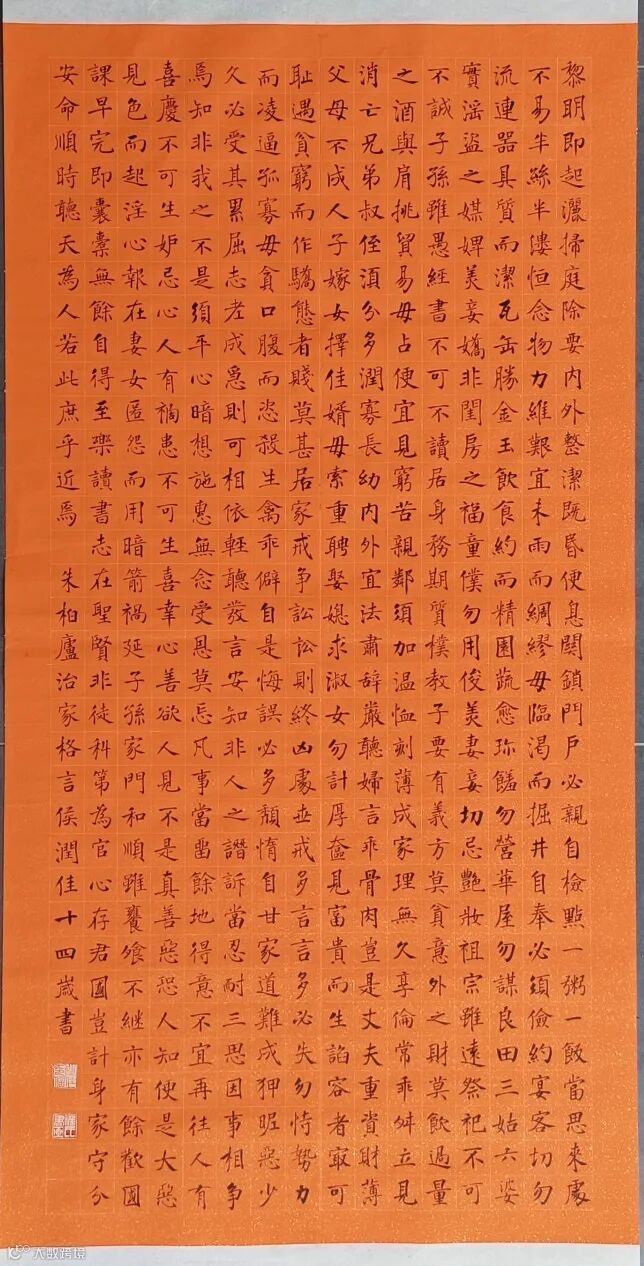 黎明即起灑掃庭除要內外整潔既昏便息關鎖門戶必親自檢點一粥一飯當思來處
不易半絲半縷恒念物力維艱宜未雨而綢繆毋臨渴而掘井自奉必須儉約宴客切勿
流連器具質而潔瓦缶勝金玉飲食約而精園蔬愈珍饈勿營華屋勿謀良田三姑六婆
實淫盜之媒婢美妾嬌非閨房之福童僕勿用俊美妻妾切忌艷妝祖宗雖遠祭祀不可
不誠子孫雖愚經書不可不讀居身務期質樸教子要有義方莫貪意外之財莫飲過量
之酒與肩挑貿易毋占便宜見窮苦親鄰須加溫恤刻薄成家理無久享倫常乖舛立見
消亡兄弟叔侄須分多潤寡長幼內外宜法肅辭嚴聽婦言乖骨肉豈是丈夫重資財薄
父母不成人子嫁女擇佳婿毋索重聘娶媳求淑女勿計厚奩見富貴而生諂容者最可
恥遇貧窮而作驕態者賤莫甚居家戒爭訟訟則終凶處世戒多言言多必失勿恃勢力
而凌逼孤寡毋貪口腹而恣殺生禽乖僻自是悔誤必多頹惰自甘家道難成狎昵惡少
久必受其累屈志老成急則可相依輕聽發言安知非人之譖訴當忍耐三思因事相爭
焉知非我之不是須平心暗想施惠無念受恩莫忘凡事當留餘地得意不宜再往人有
喜慶不可生妒忌心人有禍患不可生喜幸心善欲人見不是真善惡恐人知便是大惡
見色而起淫心報在妻女匿怨而用暗箭禍延子孫家門和順雖饔飧不繼亦有餘歡國
課早完即囊橐無餘自得至樂讀書志在聖賢非徒科第為官心存君國豈計身家守分
安命順時聽天為人若此庶乎近焉 朱柏廬治家格言侯潤佳十四歲書
大数跨境